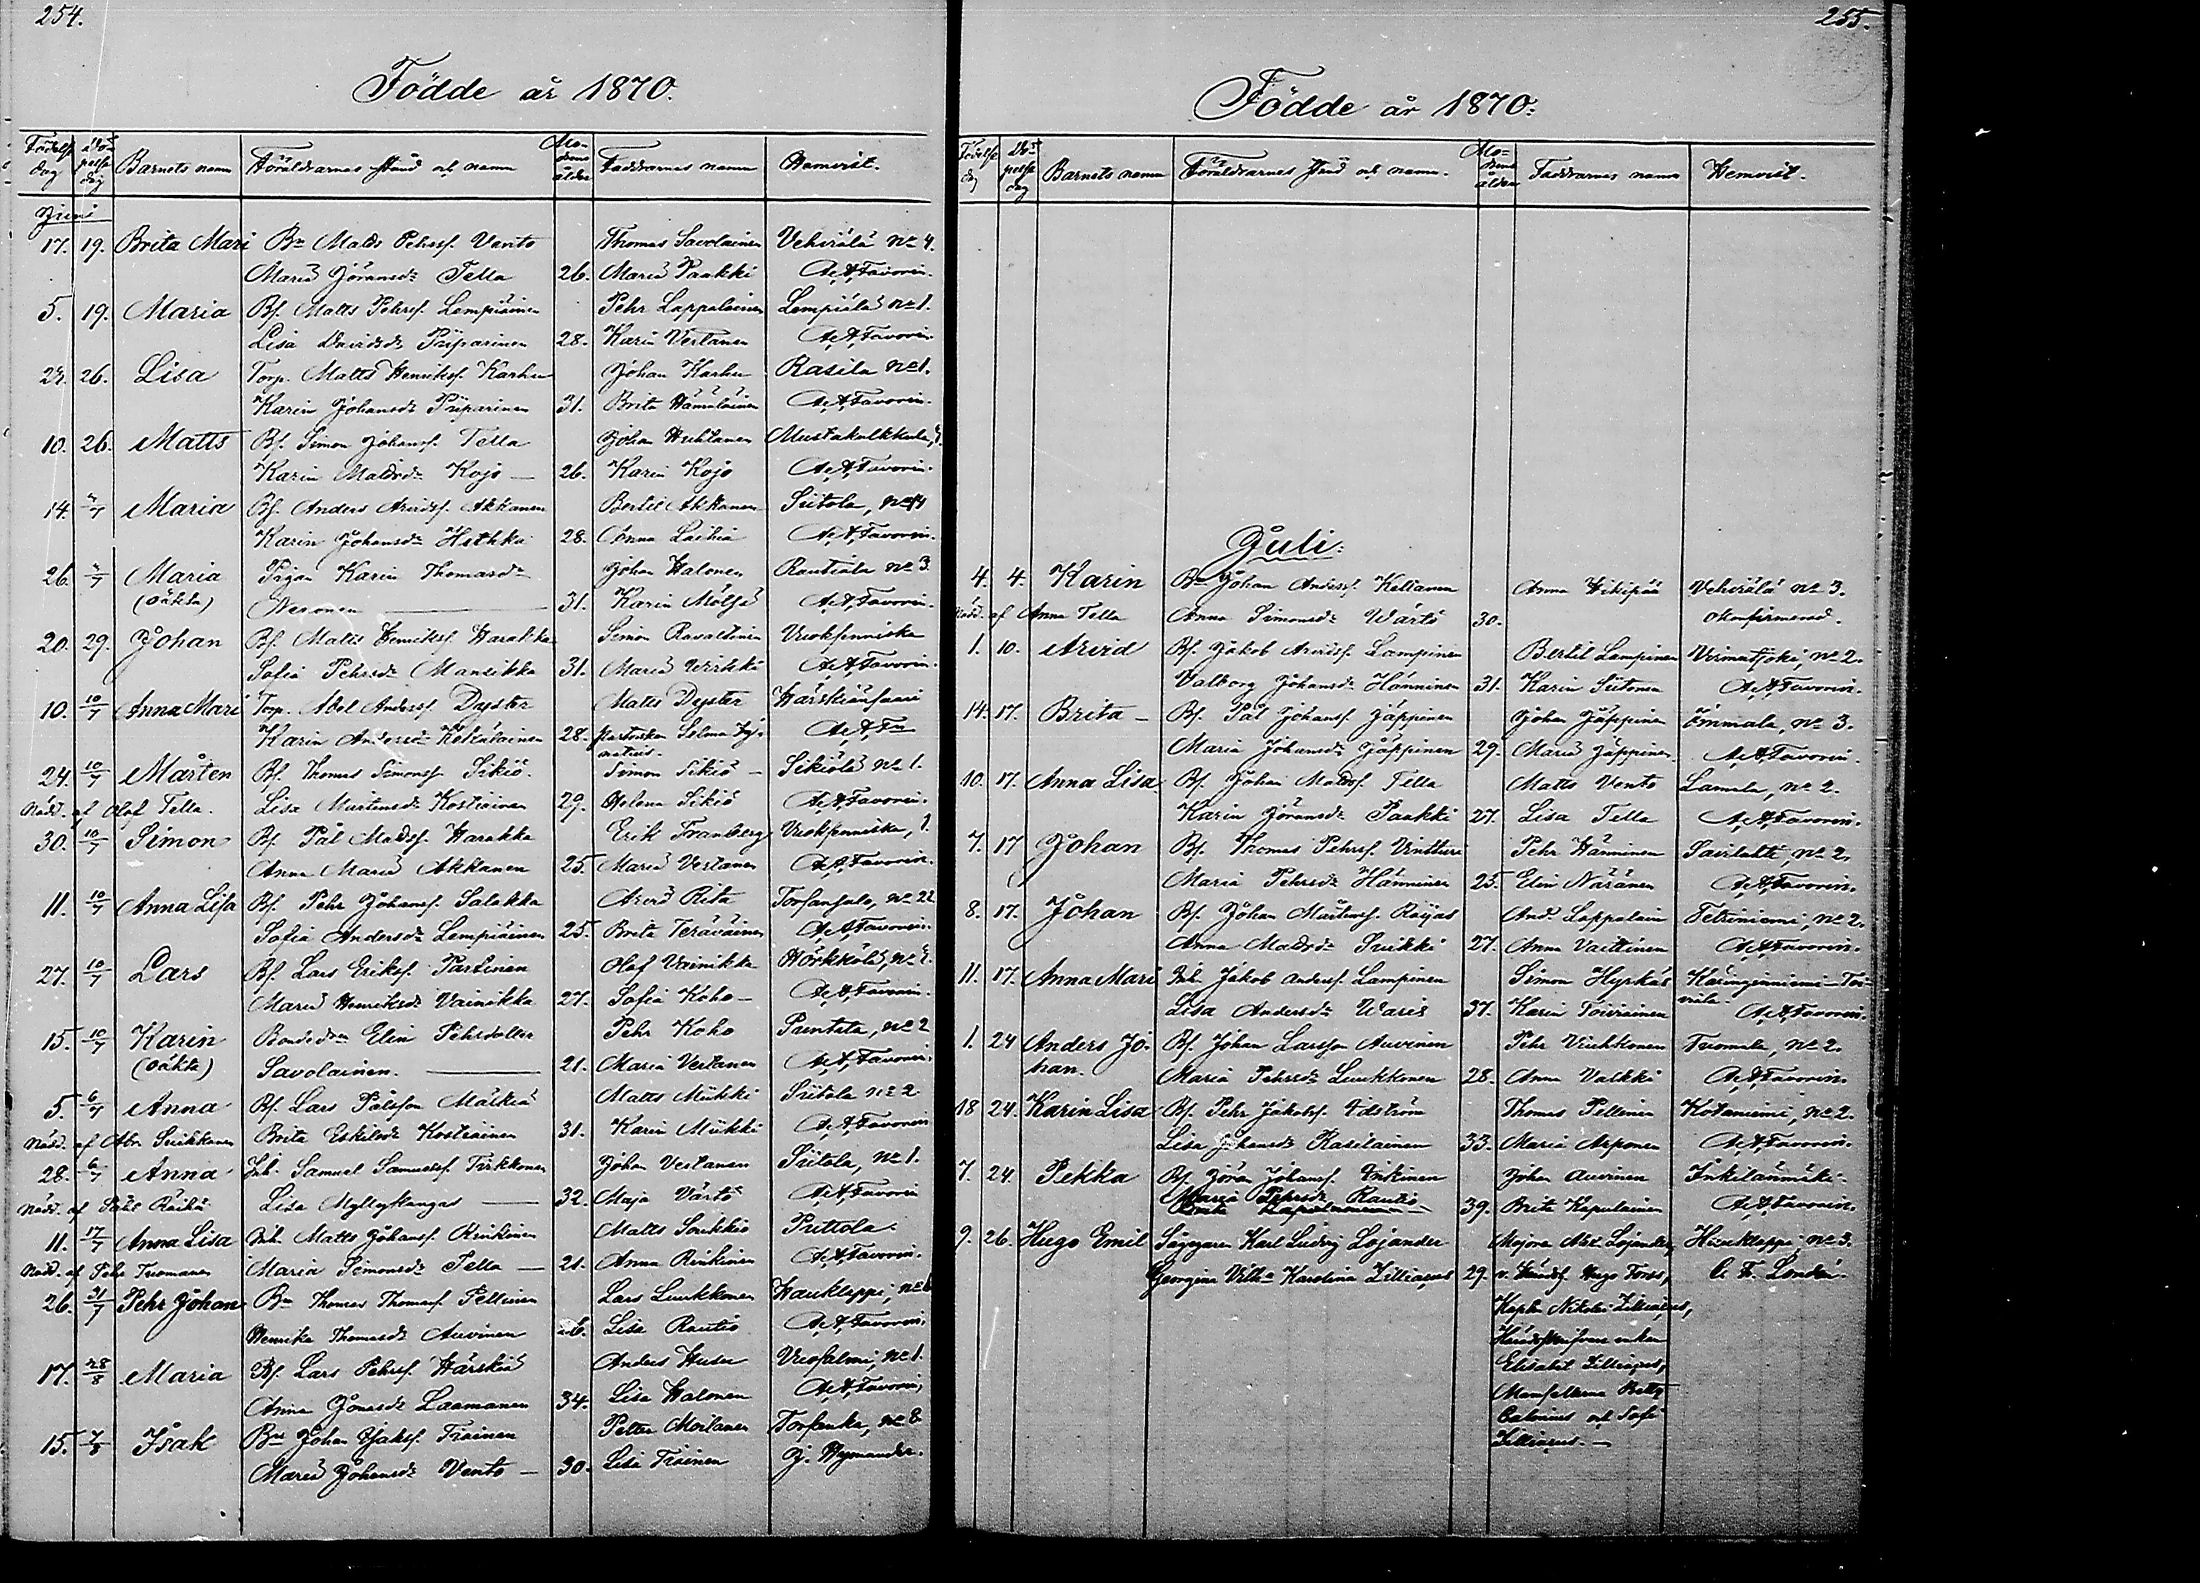 254.
Födde år 1870.
Födelse dag Döpelse dag Barnets namn Föräldrarnes stånd och namn Modrens ålder Faddrarnes namn Hemvist.
Juni
17. 19. Brita Mari Bn Matts Pehrss. Vento Thomas Savolainen Vehviälä No 4.
Maria Jöransdr Tella 26. Maria Paakki A. A. Favorin.
5. 19. Maria Bs. Matts Pehrss. Lempiäinen Pehr Lappalainen Lempiälä No 1.
Lisa Davidsdr Piiparinen 28. Karin Vertanen A. A. Favorin.
24. 26. Lisa Torp. Matts Henrikss. Karhu Johan Karhu Rasila No 1.
Karin Johansdr Piiparinen 31. Brita Hämäläinen A. A. Favorin.
10. 26. Matts Bs. Simon Johanss. Tella Johan Huhtanen Mustakulkkula,
Karin Mattsdr Kojo 26. Karin Kojo A. A. Favorin.
14. Maria Bs. Anders Arvidss. Akkanen Bertil Akkanen Siitola, No 14
Karin Johansdr Hethka 28. Anna Laihia A. A. Favorin.
26. Maria Pigan Karin Thomasdr Johan Halonen Rautiala No 3
(oäkta) Neronen 31. Karin Mölsä A. A. Favorin.
20. 29. Johan Bs. Matts Henrikss. Harakka Simon Ravattinen Vuoksenniska
Sofia Pehrsdr Mansikka 31. Maria A. A. Favorin.
10. 10/7 Anna Mari Torp. Abel Anderss. Dyster Matts Dyster Härskiänsaari
Karin Andersdr Kekäläinen 28. Selma A. A. Fn
24. 10/7 Mårten Bs. Thomas Simonss. Sikiö. Simon Sikiö Sikiölä No 1.
Nöd. af Olof Tella. Lisa Mårtensdr Kostiainen 29. Helena Sikiö A. A. Favorin.
30. 10/7 Simon Bs. Pål Mattss. Harakka Erik Franberg Vuoksenniska, 1.
Anna Maria Akkanen 25. Maria Vertanen A. A. Favorin.
11. 10/7 Anna Lisa Bs. Pehr Johanss. Salakka Arvid Rita Torsansalo, No 22
Sofia Andersdr Lempiäinen 25. Brita Teräväinen A. A. Favorin.
27. 10/7 Lars Bs. Lars Erikss. Partinen Olof Vainikka Hörkkölä, No
Maria Henriksdr Vainikka 27. Sofia Koho A. A. Favorin.
15. 10/7 Karin Bondedn Elin Pehrsdotter Pehr Koho Puntala, No 2
(oäkta) Savolainen. 21. Maria Vertanen A. A. Favorin.
5. 6/7 Anna Bs. Lars Pålsson Mäckiä Matts Miikki Siitola No 2
Nöd. af Abr. Suikkanen Brita Eskilsdr Kostiainen 31. Karin Miikki A. A. Favorin
28. 6/7 Anna Inh. Samuel Samuelss. Tirkkonen Johan Vertanen Siitola, No 1.
Nöd. af Räihä Lisa Myllykangas 32. Maja Värtö A. A. Favorin
11. 17/7 Anna Lisa Inh. Matts Johanss. Rinkinen Matts Soukkio Puttola.
Nöd. af Pehr Tuomanen Maria Simonsdr Tella 21. Anna Rinkinen A. A. Favorin.
26. 31/7 Pehr Johan Bn Thomas Thomass. Pellinen Lars Luukkonen Haukleppi, No 6
Henrika Thomasdr Auvinen 26. Lisa Rautio A. A. Favorin.
17. 28/8 Maria Bs. Lars Pehrss. Härskiä Anders Husu Vuosalmi, No 1.
Anna Jönsdr Laamanen 34. Lisa Halonen A. A. Favorin.
15. 7/8 Isak Bn Johan Isakss. Trainen Petter Moilanen Torsanka, No 8.
Maria Johansdr Vento 30. Lisa Trainen G. Hymander.
255.
Födde år 1870.
Födelse dag Döpelse dag Barnets namn Föräldrarnes stånd och namn. Modrens ålder Faddrarnes namn Hemvist.
Juli.
4. 4. Karin Bn Johan Anderss. Keltanen Anna Hikipää Vehviälä No 3.
Nöd. af Anna Tella Anna Simonsdr Wärtö 30. Okonfirmerad.
1. 10. Arvid Bs. Jakob Arvidss. Lampinen Bertil Lampinen Virmutjoki, No 2.
Valborg Johansdr Hänninen 31. Karin Siitonen A. A. Favorin.
14. 17. Brita Bs. Pål Johanss. Jäppinen Johan Jäppinen Immala, No 3.
Maria Johansdr Jäppinen 29. Maria Jäppinen A. A. Favorin.
10. 17. Anna Lisa Bs. Johan Mattss. Tella Matts Vento Lamala, No 2.
Karin Jöransdr Paakki 27. Lisa Tella A. A. Favorin.
7. 17 Johan Bs. Thomas Pehrss. Vinttura Pehr Hänninen Savilahti, No 2.
Maria Pehrsdr Hänninen 25. Elin Näränen A. A. Favorin.
8. 17. Johan Bs. Johan Mårtenss. Raijas And. Lappalain Tetriniemi, No 2.
Anna Mattsdr Suikki 27. Anna Vaittinen A. A. Favorin.
11. 17. Anna Mari Inh. Jakob Anderss. Lampinen Simon Hyrkäs Käringenniemi
Lisa Andersdr Waris 37. Karin Toiviainen A. A. Favorin.
1. 24 Anders Jo- Bs. Johan Larsson Auvinen Pehr Viuhkonen Tuomala, No 2.
han. Maria Pehrsdr Luukkonen 28. Anna Vaikki A. A. Favorin.
18 24. Karin Lisa Bs. Pehr Jakobss. Idström Thomas Pellinen Kotaniemi, No 2.
Lisa Johansdr Rasilainen 33. Maria Asponen A. A. Favorin.
7. 24. Pekka Bs. Jöran Johanss. Inkinen Johan Auvinen Inkilänmäki.
Maria Pehrsdr Rautio 39. Brita Kapulainen A. A. Favorin.
9. 26. Hugo Emil Sågegaren Karl Ludvig Lojander Majoren Alex. Lojander, Haukleppi No 3.
Georgina Vilha Karolina Zilliacus 29. v. Häradsh. Hugo Forss, C. F. Londén.
Kapten Nikolai Zilliacus,
enkan
Elisabet Zilliacus,
Mamsellerna Betty
Calonius och Sofi
Zilliacus.